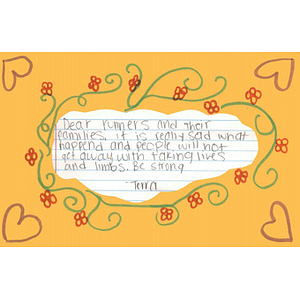 Dear runners and their
families, it is really sad what
happend and people will not
get away with taking lives
and limbs. Be strong
-Terra